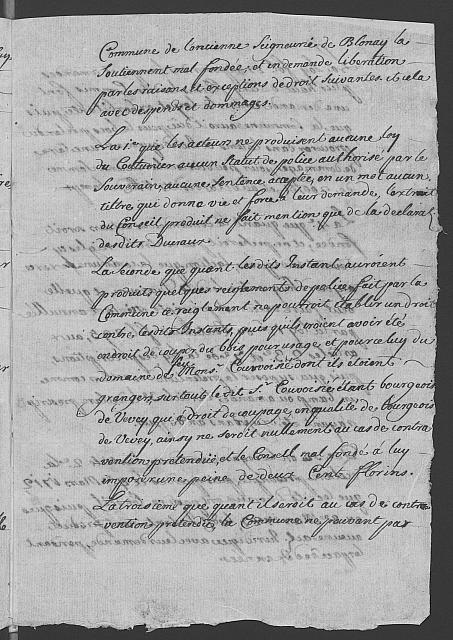 Commune de l'ancienne Seigneurie de Blonay la
soutiennent mal fondée, et en demande liberation
par les raisons et exceptions de droit suivantes. et cela
avec despends et dommages.
La 1.e que les acteurs ne produisent aucune loy
du Coutumier aucun statut de police authorisé par le
Souverain, aucune sentence acceptée, en un mot aucun
titre, que donne vie et force à leur demande, l'extrait
du Conseil produit ne fait mention que de la declarat
desdits Dunaux.
La seconde que quant lesdits Instant auroient
produits quelques reiglements de police fait par la
Commune ce reiglement ne pourroit établir un droit
contre lesdits Instants, puis qu'ils croient avoir été
en droit de couper du bois pour usage et pour celuy du
domaine de feu Mons.r Couvoisié dont ils étoient
grangers, surtout le dit S.r Couvoisié étant bourgeois
de Vevey, qui a Droit de coupage, en qualité de Bourgeois
de Vevey, ainsy ne seroit nullement au cas de contra
vention pretendüe, et le Conseil mal fondé à luy
imposer une peine de deux Cent florins.
La troisième que quant il seroit au cas de contra
vention pretendüe, la Commune ne pouvant par